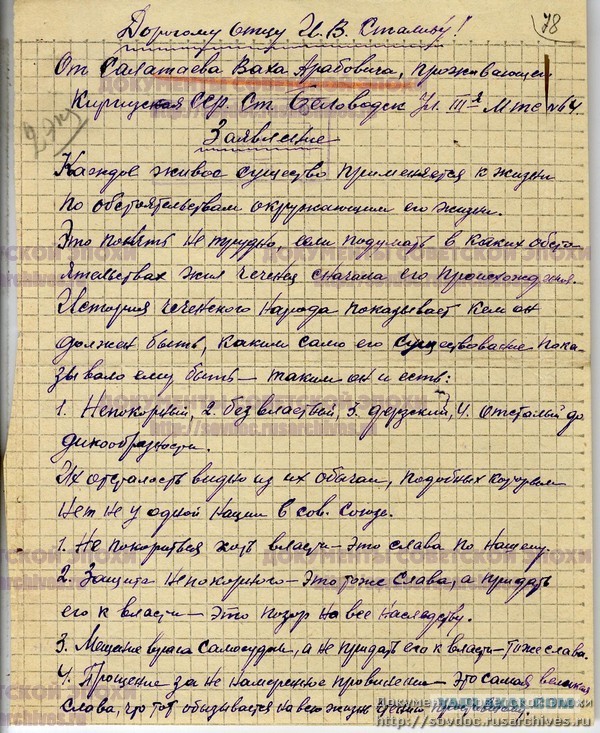 78
Дорогому отцу И. В. Сталину!
От Салатаева Ваха Арабовича, проживающей
Киргизская ССР. Ст. Беловодск Ул. IIIя МТС №64.
Заявление
Каждое живое существо применяется к жизни
по обстоятельствам окружающим его жизни.
Это понять не трудно, если подумать в каких обсто
ятельствах жил чеченец сначала его происхождения.
История чеченского народа показывает кем он
должен быть, каким само его существование пока-
зывало ему быть – таким он и есть:
1. Непокорный, 2. безвластный, 3. дерзский, 4. отсталый до
дикообразности.
Их отсталость видно из их обычаи, подобных которым
нет не у одной нации в сов. Союзе.
1. Не покориться хоть власти – это слава по нашему.
2. Защита непокорного – это тоже слава, а придать
его к власти – это позор на все наследству.
3. Мещение врага самосудом, а не придать его к власти – тоже слава.
4. Прощение за не намеренное провинение – это самая великая
слава, что тот обязывается на всю жизнь
ДОКУМЕНТЫ СОВЕТСКОЙ ЭПОХИ
http://sovdoc.rusarchives.ru
Документы советской эпохи
YAPLAKAL.COM
http://sovdoc.rusarchives.ru